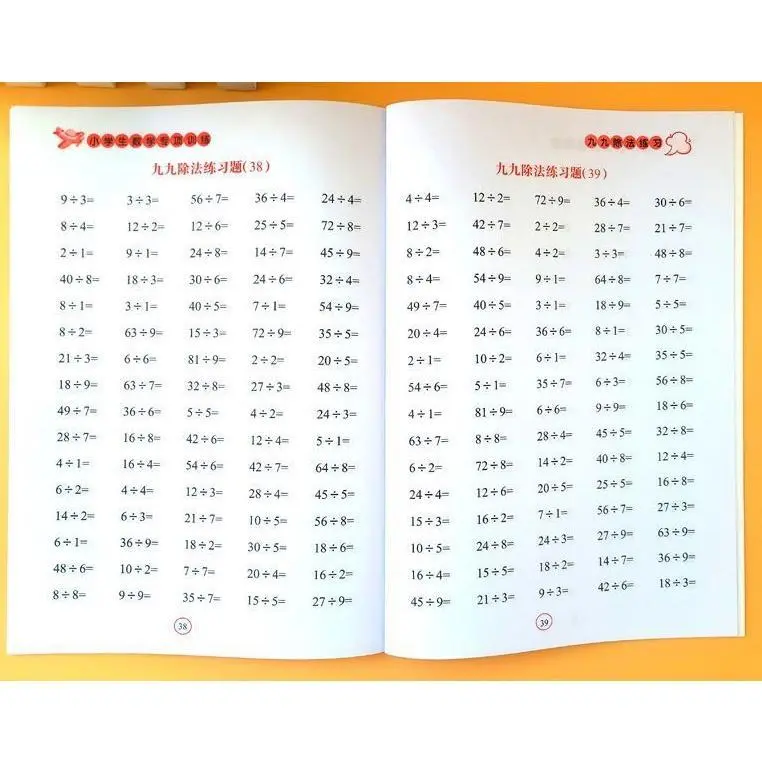 小学生数学专项训练
九九除法练习题(38)
9÷3= 3÷3= 56÷7= 36÷4= 24÷4=
8÷4= 12÷2= 12÷6= 25÷5= 72÷8=
2÷1= 9÷1= 24÷8= 14÷7= 45÷9=
40÷8= 18÷3= 30÷6= 24÷6= 32÷4=
8÷1= 3÷1= 40÷5= 7÷1= 54÷9=
8÷2= 63÷9= 15÷3= 72÷9= 35÷5=
21÷3= 6÷6= 81÷9= 2÷2= 20÷5=
18÷9= 63÷7= 32÷8= 27÷3= 48÷8=
49÷7= 36÷6= 5÷5= 4÷2= 24÷3=
28÷7= 16÷8= 42÷6= 12÷4= 5÷1=
4÷1= 16÷4= 54÷6= 42÷7= 64÷8=
6÷2= 4÷4= 12÷3= 28÷4= 45÷5=
14÷2= 6÷3= 21÷7= 10÷5= 56÷8=
6÷1= 36÷9= 18÷2= 30÷5= 18÷6=
48÷6= 10÷2= 7÷7= 20÷4= 16÷2=
8÷8= 9÷9= 35÷7= 15÷5= 27÷9=
38
九九除法练习
九九除法练习题(39)
4÷4= 12÷2= 72÷9= 36÷4= 30÷6=
12÷3= 42÷7= 2÷2= 28÷7= 21÷7=
8÷2= 48÷6= 4÷2= 3÷3= 48÷8=
8÷4= 54÷9= 9÷1= 64÷8= 7÷7=
49÷7= 40÷5= 3÷1= 18÷9= 5÷5=
20÷4= 24÷6= 36÷6= 8÷1= 30÷5=
2÷1= 10÷2= 6÷1= 32÷4= 35÷5=
54÷6= 5÷1= 35÷7= 6÷3= 56÷8=
4÷1= 81÷9= 6÷6= 9÷9= 18÷6=
63÷7= 8÷8= 28÷4= 45÷5= 32÷8=
6÷2= 72÷8= 14÷2= 40÷8= 12÷4=
24÷4= 12÷6= 20÷5= 25÷5= 16÷8=
15÷3= 16÷2= 7÷1= 56÷7= 27÷3=
10÷5= 24÷8= 24÷3= 27÷9= 63÷9=
16÷4= 15÷5= 18÷2= 14÷7= 36÷9=
45÷9= 21÷3= 9÷3= 42÷6= 18÷3=
39